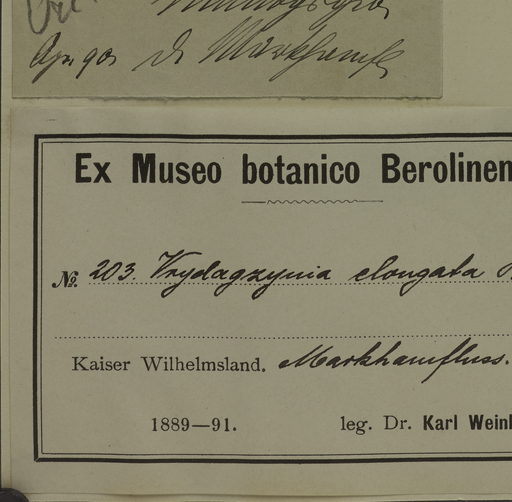 Ex Museo botanico Berolinen
№ 203. Vrydagzynia elongata
Kaiser Wilhelmsland. Markhamfluss.
1889—91. leg. Dr. Karl Weinl